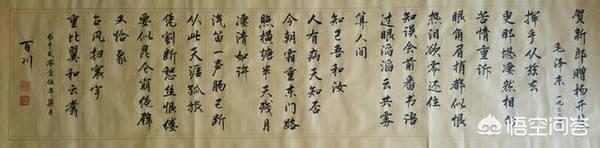 贺新郎赠杨开慧
毛泽东 一九二三
挥手从兹去
更那堪凄然相向
苦情重诉
眼角眉梢都似恨
热泪欲零还住
知误会前番书语
过眼滔滔云共雾
算人间
知己吾和汝
人有病天知否
今朝霜重东门路
照横塘半天残月
凄清如许
汽笛一声肠已断
从此天涯孤旅
凭割断愁丝恨缕
要似昆仑崩绝壁
又恰象
台风扫寰宇
重比翼和云翥
书于贰零壹伍年
百川
悟空问答